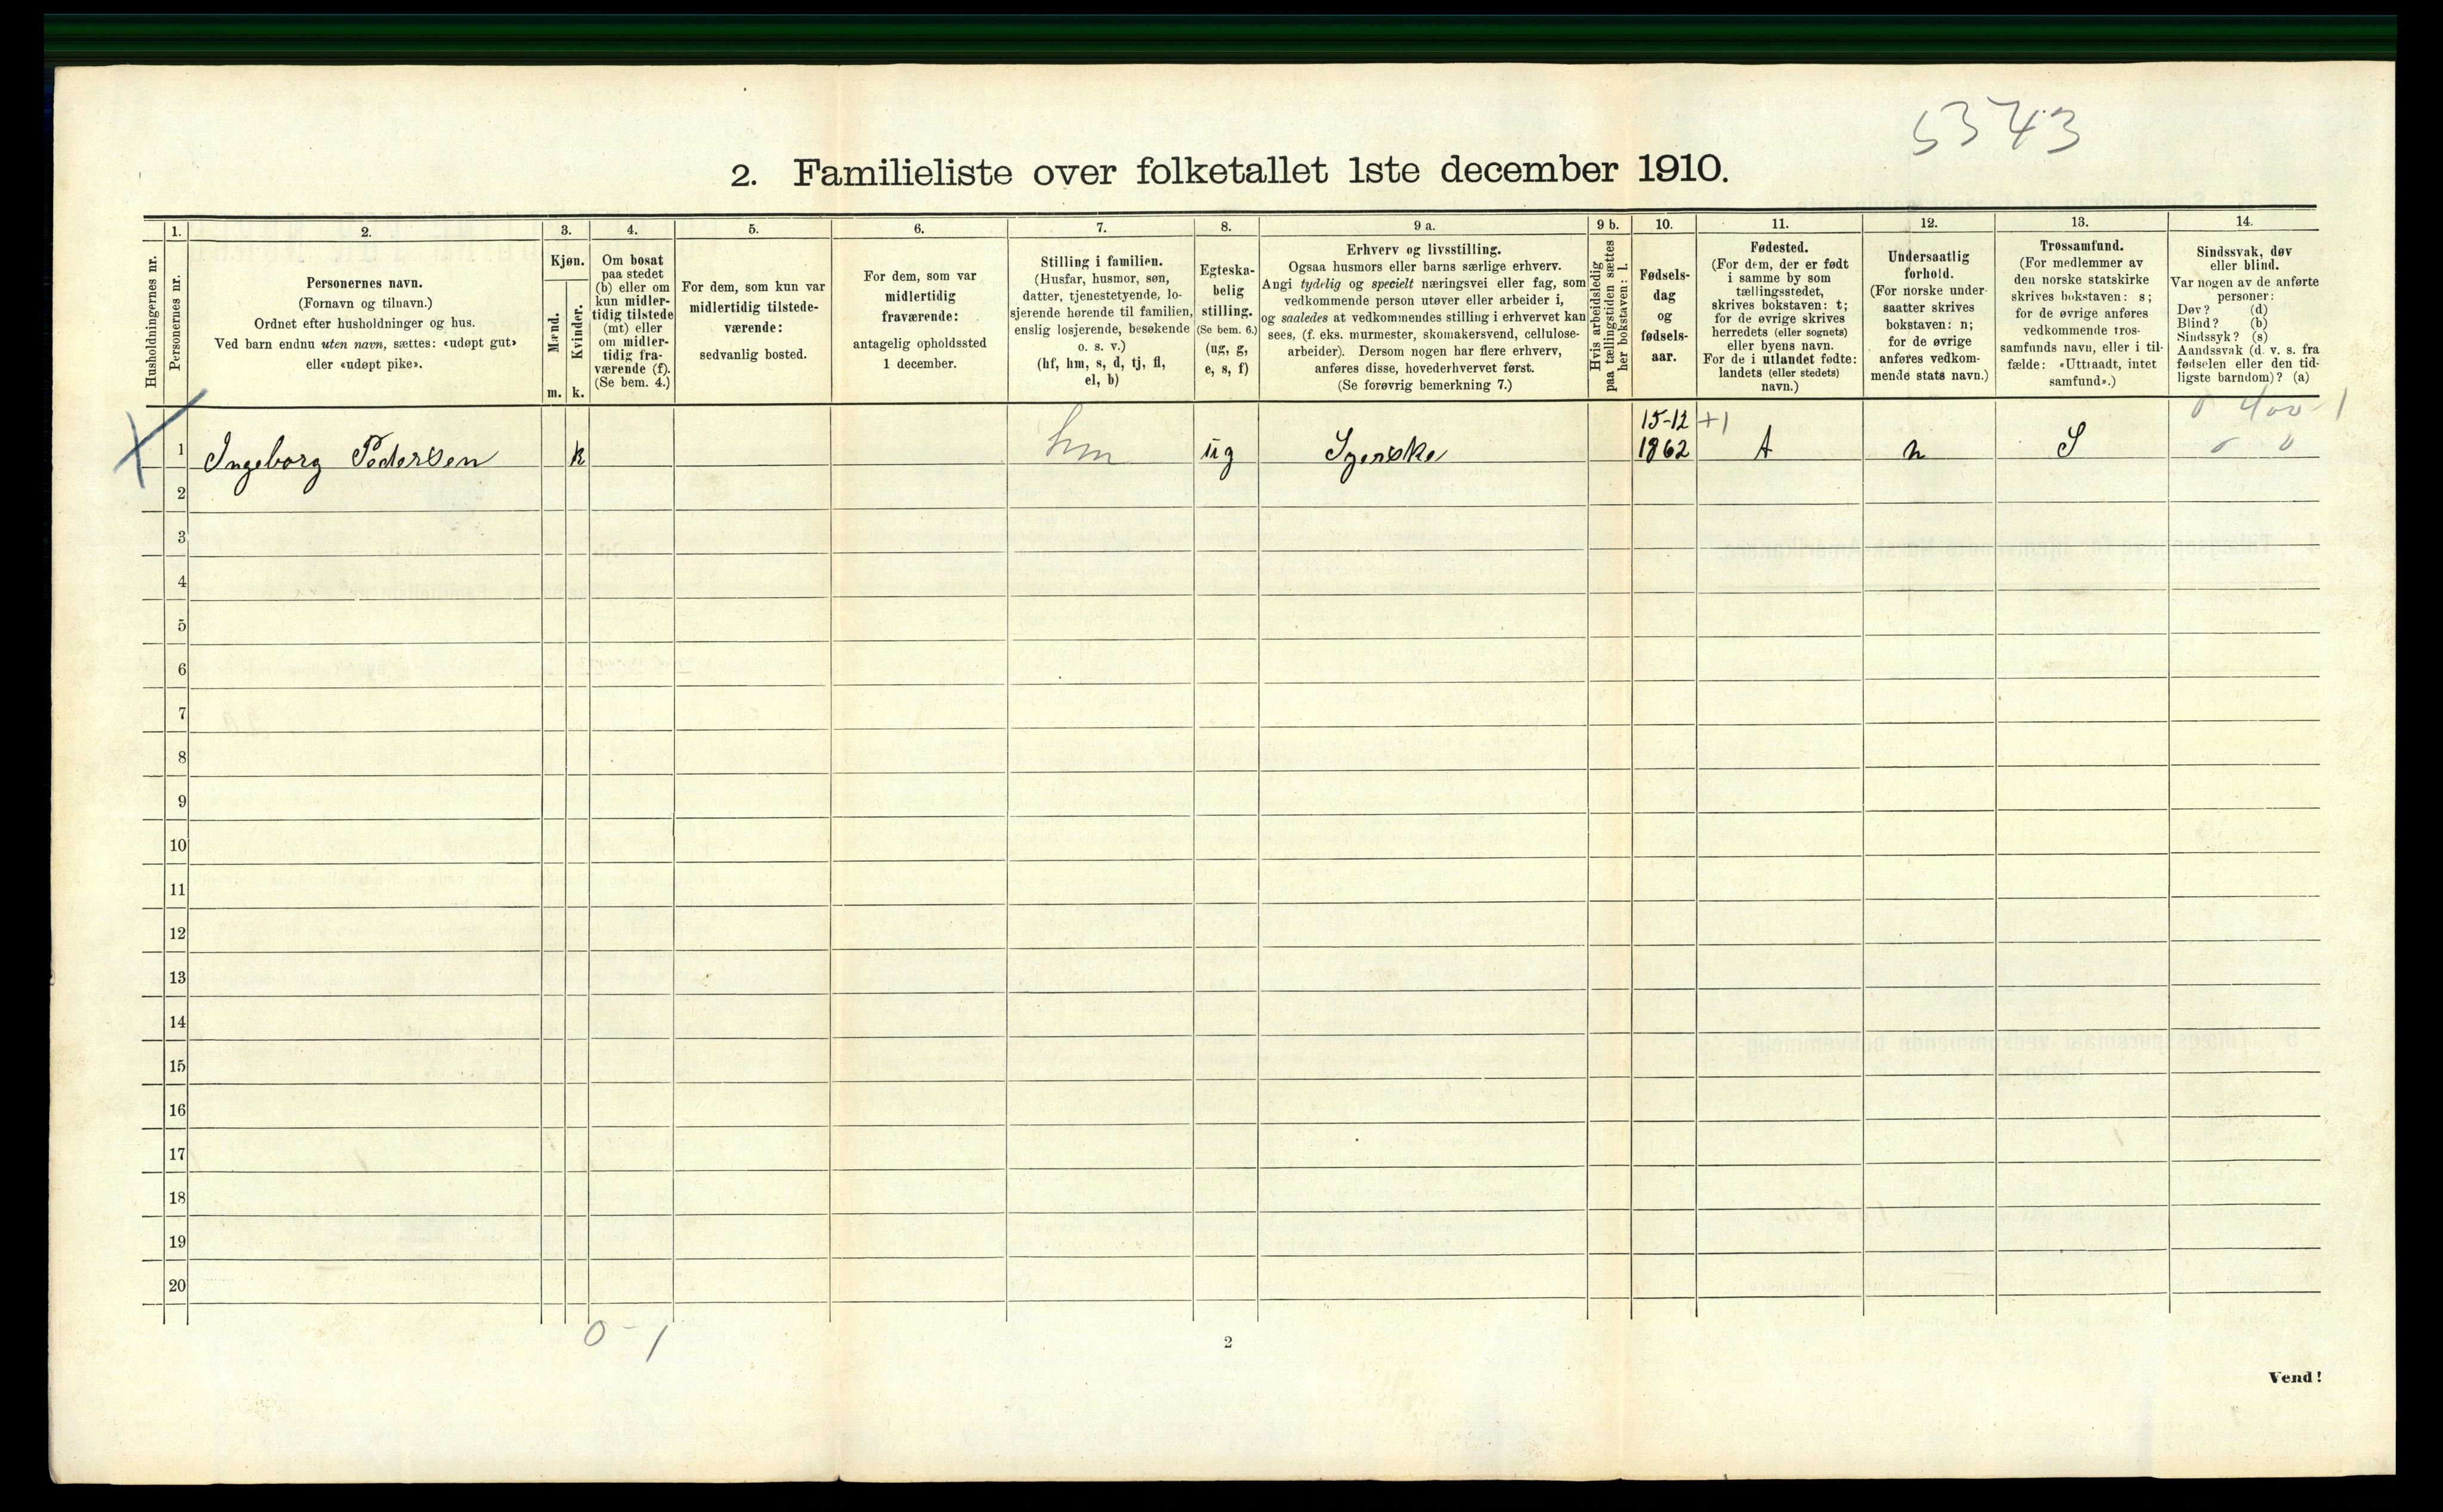 5343
2. Familieliste over folketallet 1ste december 1910.
Husholdningernes nr.
1.
Personernes nr.
2.
Personernes navn.
(Fornavn og tilnavn.)
Ordnet efter husholdninger og hus.
Ved barn endnu uten navn, sættes: «udøpt gut»
eller «udøpt pike».
3.
Kjøn.
Mænd.
m.
Kvinder.
k.
4.
Om bosat
paa stedet
(b) eller om
kun midler-
tidig tilstede
(mt) eller
om midler-
tidig fra-
værende (f).
(Se bem. 4.)
5.
For dem, som kun var
midlertidig tilstede-
værende:
sedvanlig bosted.
6.
For dem, som var
midlertidig
fraværende:
antagelig opholdssted
1 december.
7.
Stilling i familien.
(Husfar, husmor, søn,
datter, tjenestetyende, lo-
sjerende hørende til familien,
enslig losjerende, besøkende
o. s. v.)
(hf, hm, s, d, tj, fl,
el, b)
8.
Egteska-
belig
stilling.
(Se bem. 6.)
(ug, g,
e, s, f)
9 a.
Erhverv og livsstilling.
Ogsaa husmors eller barns særlige erhverv.
Angi tydelig og specielt næringsvei eller fag, som
vedkommende person utøver eller arbeider i,
og saaledes at vedkommendes stilling i erhvervet kan
sees, (f. eks. murmester, skomakersvend, cellulose-
arbeider). Dersom nogen har flere erhverv,
anføres disse, hovederhvervet først.
(Se forøvrig bemerkning 7.)
9 b.
Hvis arbeidsledig
paa tællingstiden sættes
her bokstaven: l.
10.
Fødsels-
dag
og
fødsels-
aar.
11.
Fødested.
(For dem, der er født
i samme by som
tællingsstedet,
skrives bokstaven: t;
for de øvrige skrives
herredets (eller sognets)
eller byens navn.
For de i utlandet fødte:
landets (eller stedets)
navn.)
12.
Undersaatlig
forhold.
(For norske under-
saatter skrives
bokstaven: n;
for de øvrige
anføres vedkom-
mende stats navn.)
13.
Trossamfund.
(For medlemmer av
den norske statskirke
skrives bokstaven: s;
for de øvrige anføres
vedkommende tros-
samfunds navn, eller i til-
fælde: «Uttraadt, intet
samfund».)
14.
Sindssvak, døv
eller blind.
Var nogen av de anførte
personer:
Døv? (d)
Blind? (b)
Sindssyk? (s)
Aandssvak (d. v. s. fra
fødselen eller den tid-
ligste barndom)? (a)
15-12 +1
1 Ingeborg Pedersen k hm ug Syerske 1862 t n S 0 0
2
3
4
5
6
7
8
9
10
11
12
13
14
15
16
17
18
19
20
0-1
2
Vend!